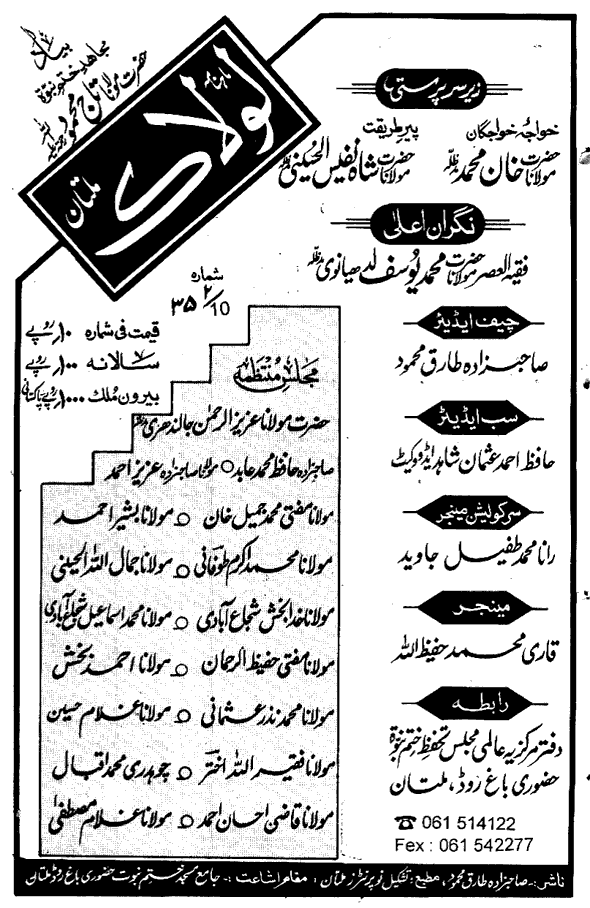 بیاد
مجاہد ختم نبوۃ
حضرت مولانا تاج محمودؒ
ماہنامہ
لولاک
ملتان
زیر سرپرستی
خواجۂ خواجگان
حضرت مولانا خان محمد مدظلہ
پیر طریقت
حضرت مولانا شاہ نفیس الحسینی مدظلہ
نگران اعلیٰ
فقیہ العصر حضرت مولانا محمد یوسف لدھیانوی مدظلہ
چیف ایڈیٹر
صاحبزادہ طارق محمود
سب ایڈیٹر
حافظ احمد عثمان شاہد ایڈووکیٹ
سرکولیشن مینجر
رانا محمد طفیل جاوید
مینجر
قاری محمد حفیظ اللہ
رابطہ
دفتر مرکزیہ عالمی مجلس تحفظ ختم نبوۃ
حضوری باغ روڈ، ملتان
☎ 061 514122
Fex : 061 542277
شمارہ
۲/10 ۳۵
قیمت فی شمارہ ۱۰ روپے
سالانہ ۱۰۰ روپے
بیرون ملک ۱۰۰۰ روپے پاکستانی
مجلس منتظمہ
حضرت مولانا عزیز الرحمٰن جالندھری مدظلہ
صاحبزادہ حافظ محمد عابد ○ مولانا صاحبزادہ عزیز احمد
مولانا مفتی محمد جمیل خان ○ مولانا بشیر احمد
مولانا محمد اکرم طوفانی ○ مولانا جمال اللہ الحسینی
مولانا خدا بخش شجاع آبادی ○ مولانا محمد اسماعیل شجاع آبادی
مولانا مفتی حفیظ الرحمان ○ مولانا احمد بخش
مولانا محمد نذر عثمانی ○ مولانا غلام حسین
مولانا فقیر اللہ اختر ○ چوہدری محمد اقبال
مولانا قاضی احسان احمد ○ مولانا غلام مصطفیٰ
ناشر :۔ صاحبزادہ طارق محمود، مطبع : تشکیل نو پرنٹرز ملتان ، مقام اشاعت :۔ جامع مسجد ختم نبوت حضوری باغ روڈ ملتان